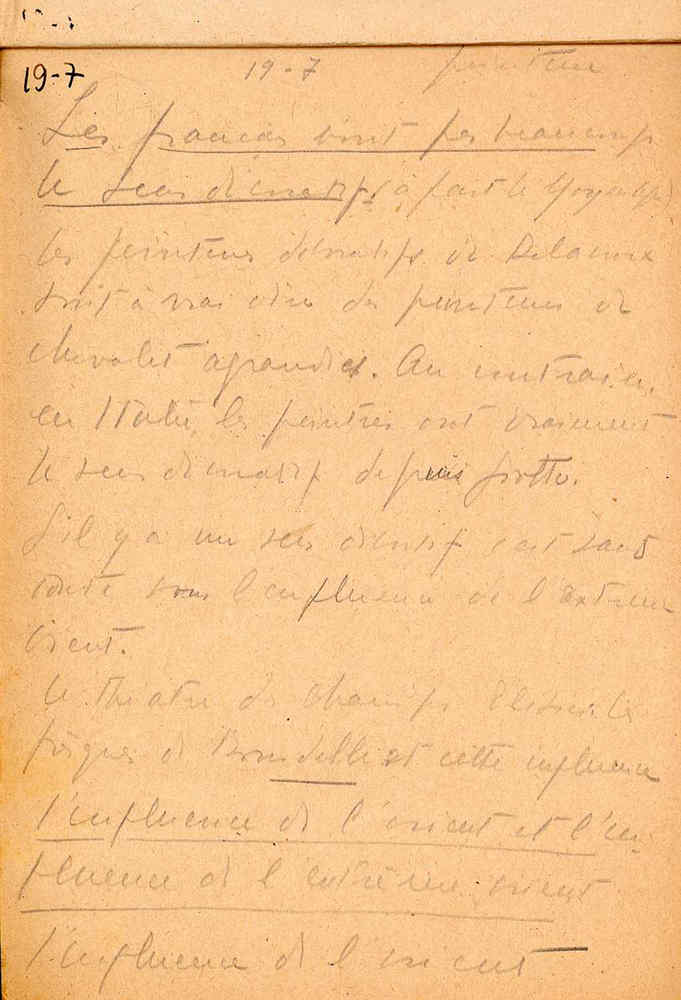 19-7
19-7 peinture
Les français n'ont pas beaucoup
le sens décoratif (à part le
les peintures décoratives de Delacroix
sont à vrai dire des peintures de
chevalet agrandies. Au contraire,
en Italie, les peintres ont vraiment
le sens décoratif depuis Giotto.
S'il y a un sens décoratif c'est sans
doute sous l'influence de l'extreme
Orient.
le théatre des Champs Elysées les
de Bourdelle et cette influence
l'influence de l'orient et l'in-
fluence de l'extrême orient
l'influence de l'orient